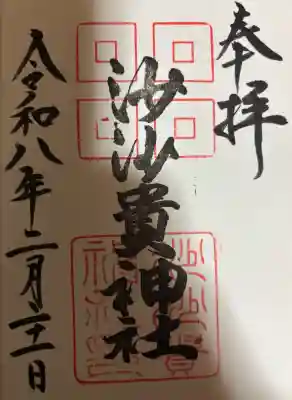 奉拝
沙沙貴神社
令和八年二月二十一日